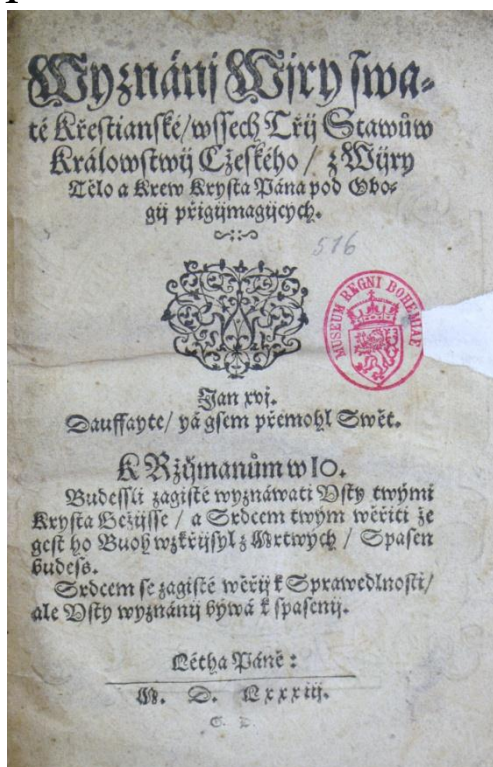 Wyznánj Wjry swa-
té Křestianské / wssech Třij Stawůw
Králowstwij Cžeského / z Wijry
Tělo a Krew Krysta Pána pod Obo-
gij přigijmagijcych.
516
MUSEUM REGNI BOHEMIAE
Jan xvj.
Dauffayte / yá gsem přemohl Swět.
K Ržijmanům w 10.
Budessli zagisté wyznáwati Vsty twými
Krysta Gežijsse / a Srdcem twým wěřiti že
gest ho Buoh wzkřijsyl z Mrtwých / Spasen
budess.
Srdcem se zagisté wěřij k Sprawedlnosti /
ale Vsty wyznánij býwá k spasenij.
Létha Páně :
M. D. Lxxxiij.